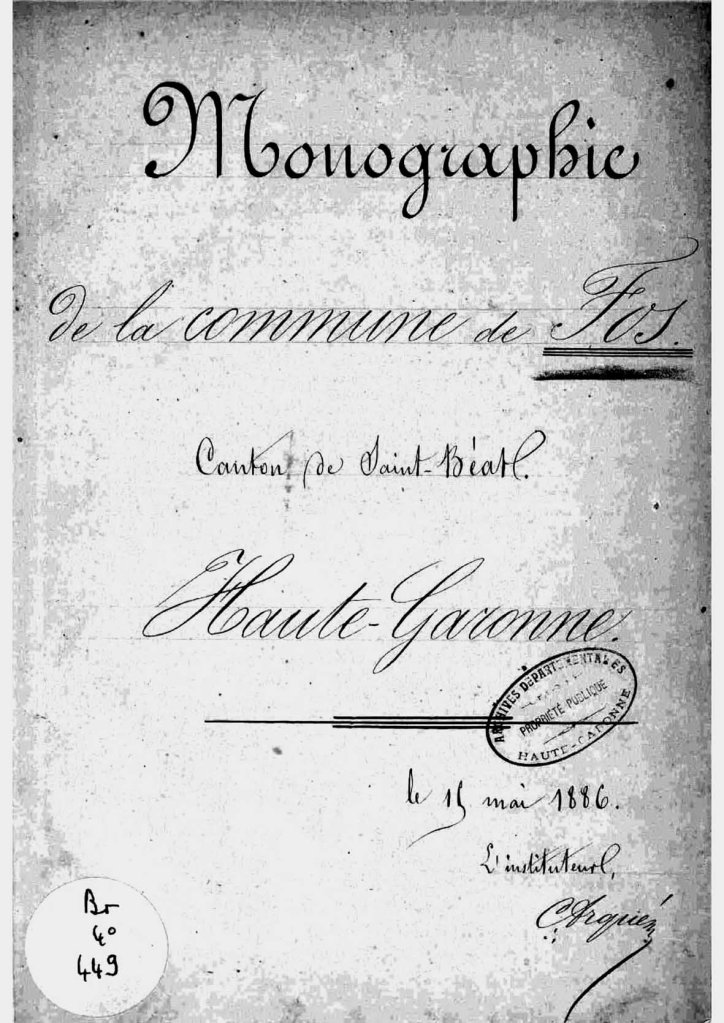 Monographie
de la commune de Fos.
Canton de Saint-Béat.
Haute-Garonne.
ARCHIVES DÉPARTEMENTALES
PROPRIÉTÉ PUBLIQUE
HAUTE-GARONNE
le 15 mai 1886.
L'instituteur,
Br
4°
449